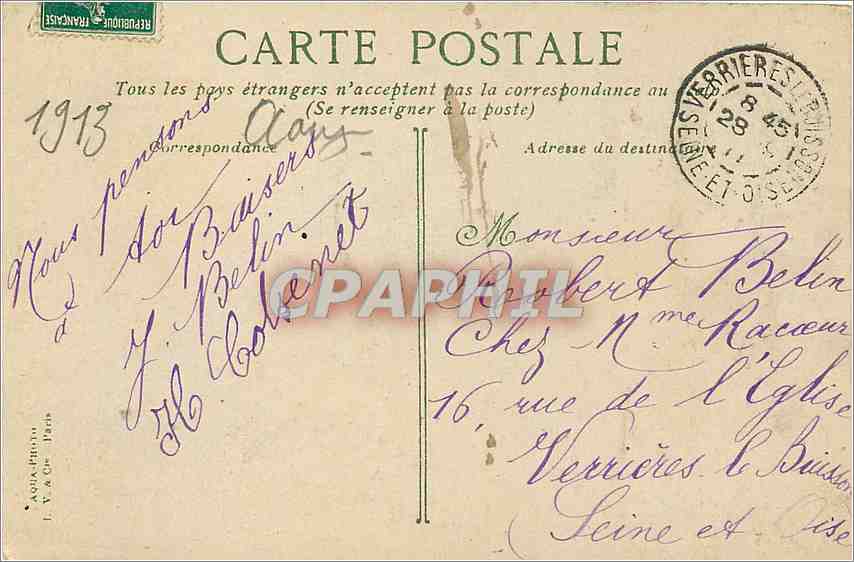 REPUBLIQUE FRANÇAISE
CARTE POSTALE
Tous les pays étrangers n'acceptent pas la correspondance au
(Se renseigner à la poste)
1913
Correspondance
Nous pensons
à toi
Baisers
J. Belin
H Colsenet
Adresse du destinataire
VERRIERES-LE-BUISSON
8 45
28
SEINE-ET-OISE
Monsieur
Robert Belin
Chez Mme Racœur
16, rue de l'Eglise
Verrières le Buisson
Seine et Oise
CPAPHIL
AQUA-PHOTO
L. V. & Cie Paris